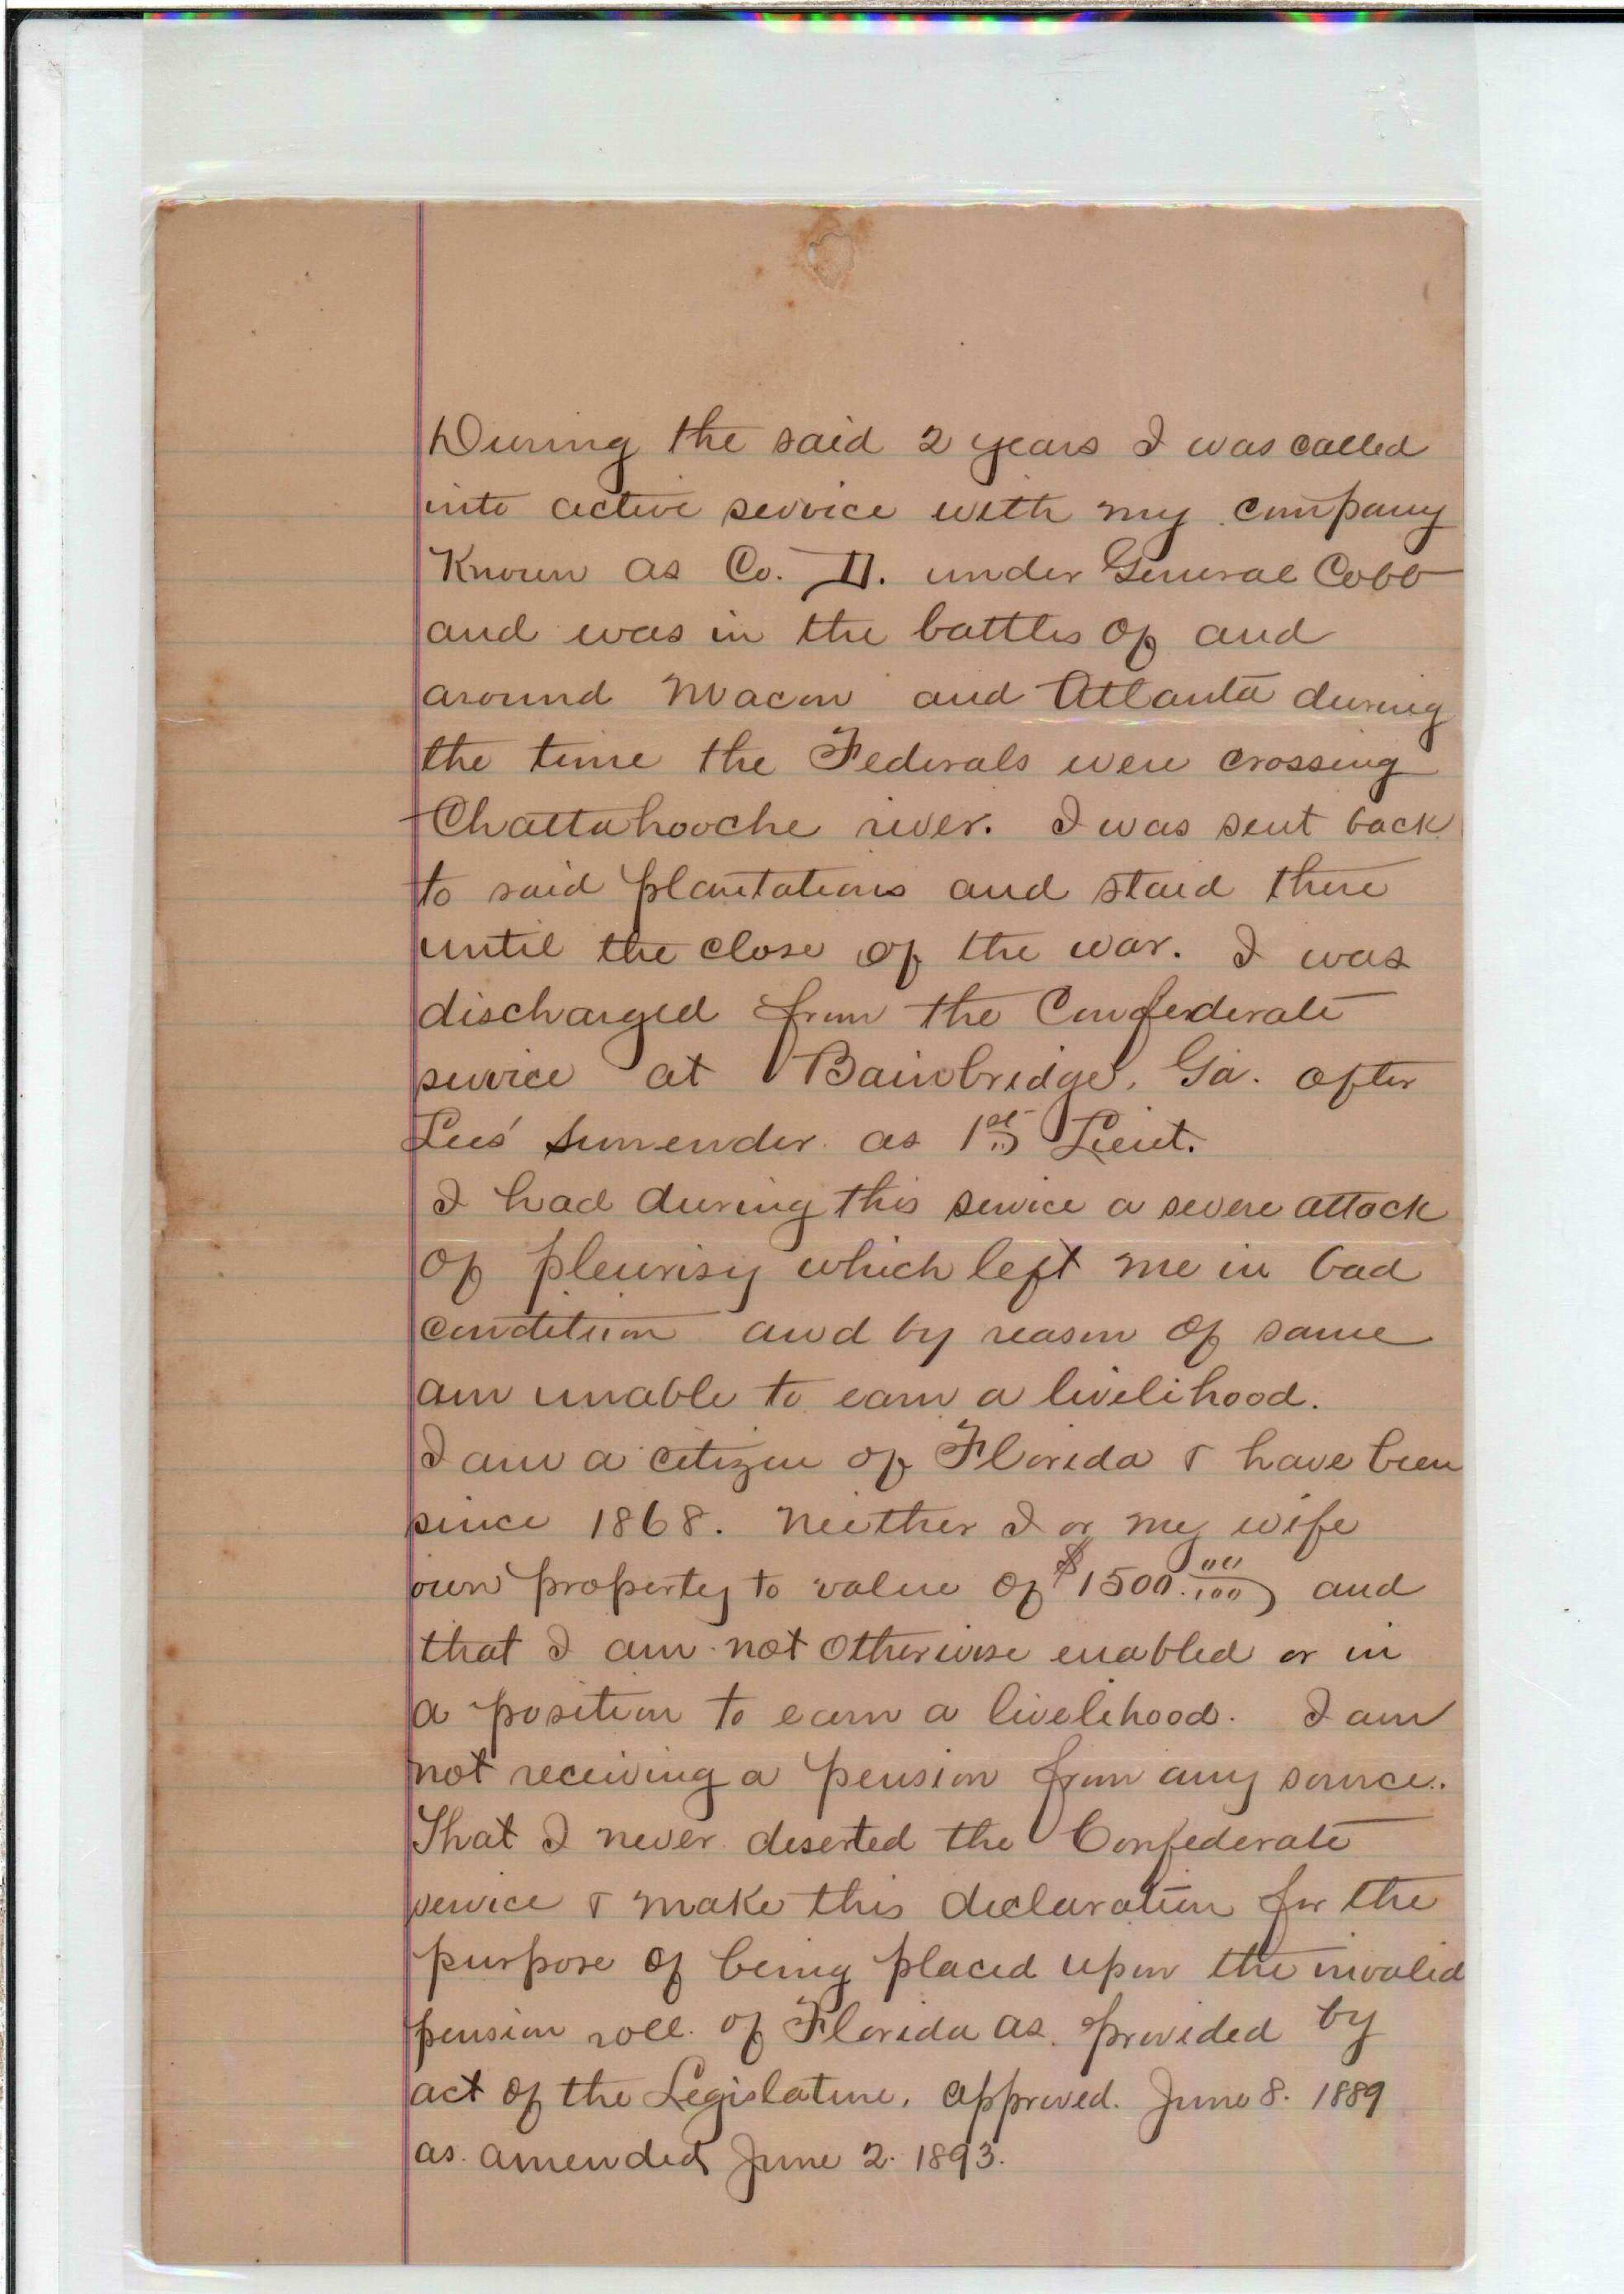 During the said 2 years I was called
into active service with my company
Known as Co. D. under General Cobb
and was in the battles of and
around Macon and Atlanta during
the time the Federals were crossing
Chattahooche river. I was sent back
to said plantations and staid there
until the close of the war. I was
discharged from the Confederate
service at Bainbridge, Ga. after
Lees' surrender as 1st Lieut.
I had during this service a severe attack
of pleurisy which left me in bad
condition and by reason of same
am unable to earn a livelihood.
I am a citizen of Florida & have been
since 1868. Neither I or my wife
own property to value of $1500.00/100) and
that I am not otherwise enabled or in
a position to earn a livelihood. I am
not receiving a pension from any source.
That I never deserted the Confederate
service & make this declaration for the
purpose of being placed upon the invalid
pension roll of Florida as provided by
act of the Legislature, approved. June 8. 1889
as amended June 2. 1893.